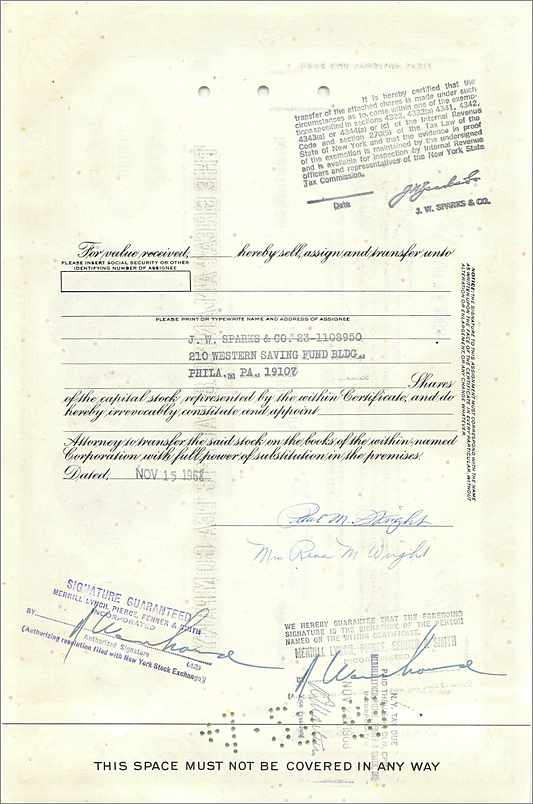 It is hereby certified that the
transfer of the attached shares is made under such
circumstances as to come within one of the exemp-
tions specified in sections 4322, 4332(a) 4341, 4342,
4343(a) or 4344(a) or (c) of the Internal Revenue
Code and section 270(5) of the Tax Law of the
State of New York and that the evidence in proof
of the exemption is maintained by the undersigned
and is available for inspection by Internal Revenue
officers and representatives of the New York State
Tax Commission.
Date
J. W. SPARKS & CO.
For value received, hereby sell, assign and transfer unto
PLEASE INSERT SOCIAL SECURITY OR OTHER
IDENTIFYING NUMBER OF ASSIGNEE
PLEASE PRINT OR TYPEWRITE NAME AND ADDRESS OF ASSIGNEE
J. W. SPARKS & CO. 23-1108950
210 WESTERN SAVING FUND BLDG.
PHILA. PA. 19107
Shares
of the capital stock represented by the within Certificate, and do
hereby irrevocably constitute and appoint
Attorney to transfer the said stock on the books of the within named
Corporation with full power of substitution in the premises.
Dated, NOV 15 1968
NOTICE: THE SIGNATURE TO THIS ASSIGNMENT MUST CORRESPOND WITH THE NAME
AS WRITTEN UPON THE FACE OF THE CERTIFICATE IN EVERY PARTICULAR, WITHOUT
ALTERATION OR ENLARGEMENT OR ANY CHANGE WHATEVER.
M. Wright
Mrs Rena M Wright
SIGNATURE GUARANTEED
MERRILL LYNCH, PIERCE, FENNER & SMITH
INCORPORATED
BY
Authorized Signature
(Authorizing resolution filed with New York Stock Exchange)
WE HEREBY GUARANTEE THAT THE FOREGOING
SIGNATURE IS THE SIGNATURE OF THE PERSON
NAMED ON THE WITHIN CERTIFICATE.
MERRILL LYNCH, PIERCE, FENNER & SMITH
N.Y. TAX DUE
THIS SPACE MUST NOT BE COVERED IN ANY WAY